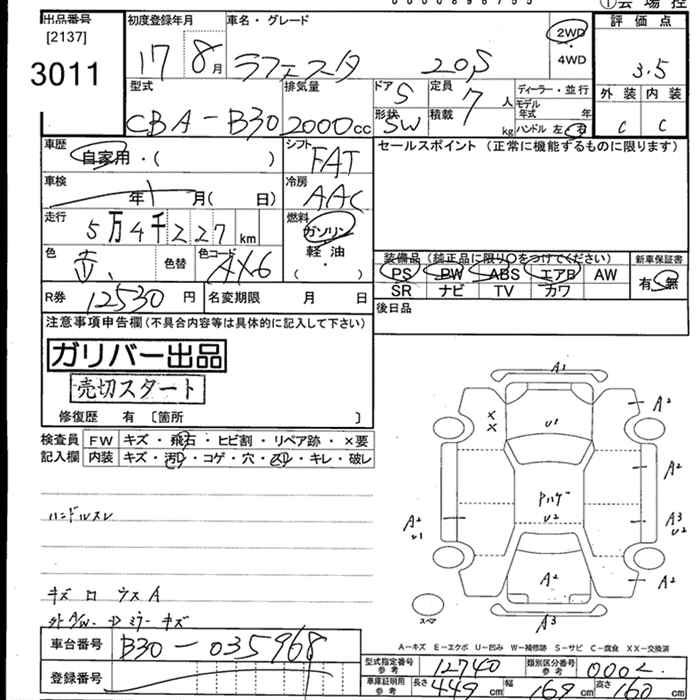 ① 会場控
出品番号 初度登録年月 車名・グレード 2WD 評価点
[2137] 17 8月 ラフェスタ 20S ・ 3.5
3011 4WD
型式 排気量 ドア 5 定員 7人 ディーラー・並行 外装 内装
CBA-B30 2000cc 形状 SW 積載 kg モデル年式 年 C C
ハンドル 左 右
車歴 シフト セールスポイント (正常に機能するものに限ります)
自家用・( ) FAT
車検 年 月( 日) 冷房 AAC
走行 5万4千227km 燃料 ガソリン
軽油
( ・ )
色 赤 色替 色コード AX6
装備品 (純正品に限り○をつけてください) 新車保証書
PS PW ABS エアB AW 有・無
SR ナビ TV カワ
R券 12530円 名変期限 月 日 後日品
注意事項申告欄(不具合内容等は具体的に記入して下さい)
ガリバー出品
売切スタート
修復歴 有 〔箇所 〕
検査員 FW キズ・飛石・ヒビ割・リペア跡・×要
記入欄 内装 キズ・汚れ・コゲ・穴・スリ・キレ・破レ
ハンドルスレ
A1
A2
X X U1
A2
Pハゲ
A2 U1 U2 A3 U2
A2 A2
スペア A3
A-キズ E-エクボ U-凹み W-補修跡 S-サビ C-腐食 XX-交換済
車台番号 B30-035968
登録番号
型式指定番号 参考 12740 類別区分番号 参考 0002
車庫証明用 参考 長さ 449cm 幅 169cm 高さ 160cm